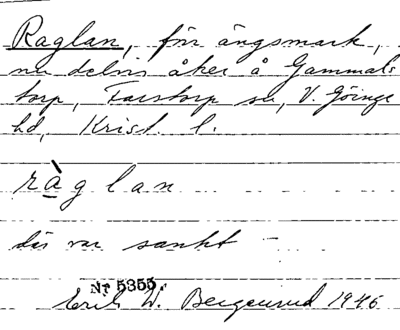 Raglan, förr ängsmark,
nu delvis åker å Gammals
torp, Farstorp sn, V. Göinge
hd, Krist. l.
ràglan
där var sankt –
Nr 5355.
Erik W. Bergenrud 1946